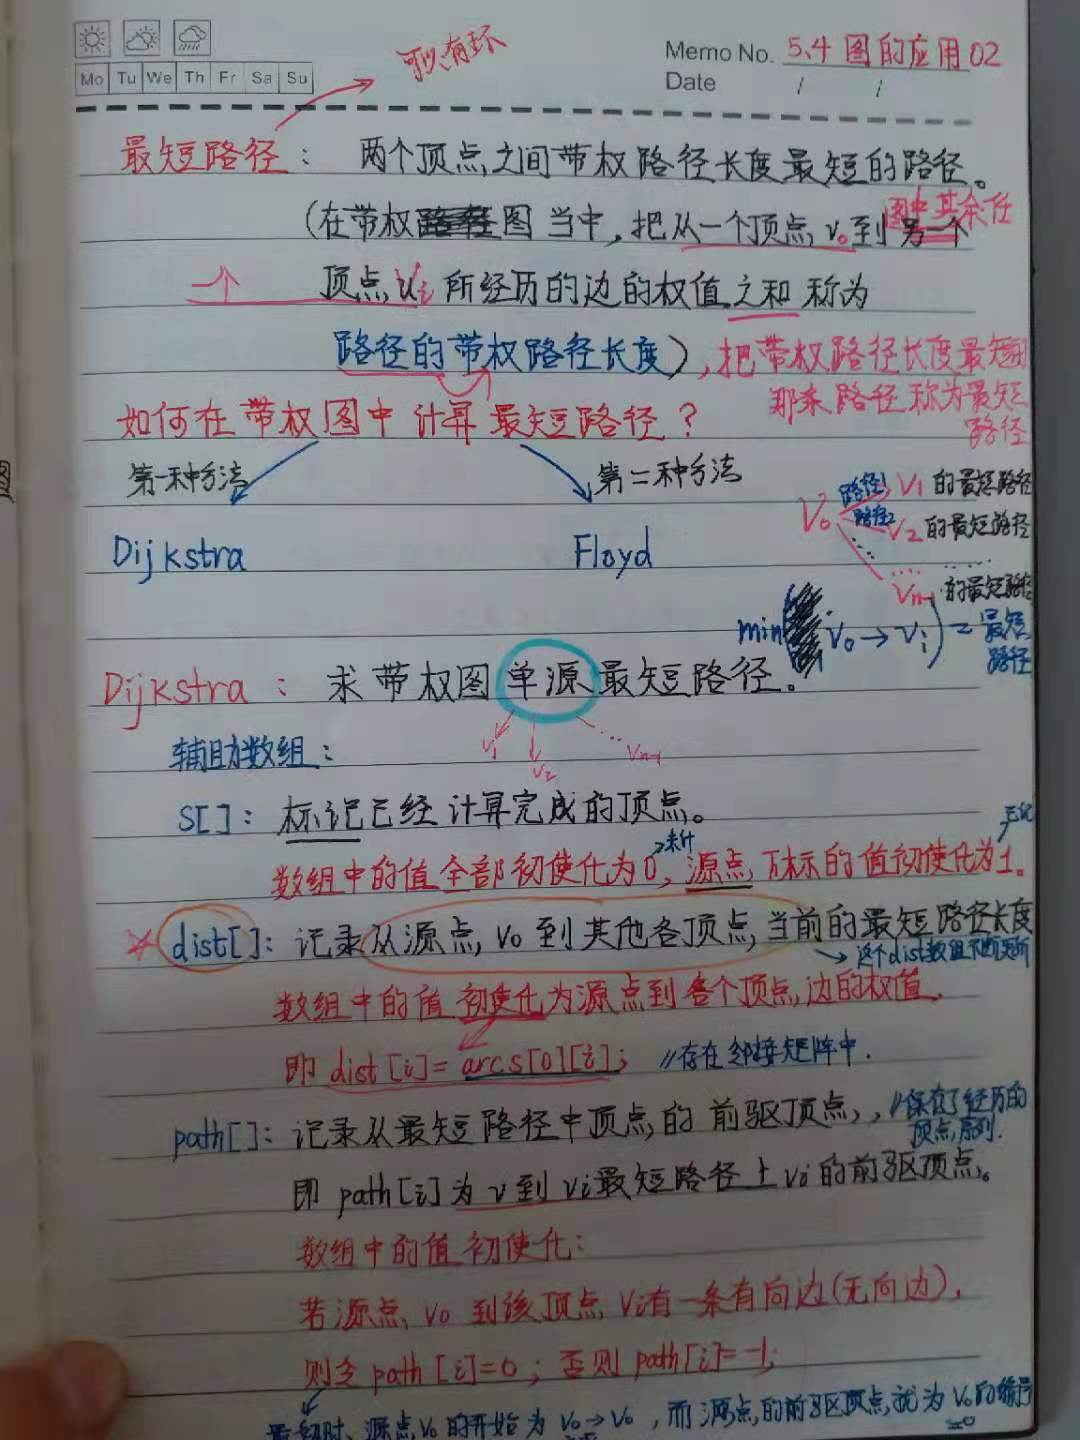 可以有环
Memo No. 5.4 图的应用02
Mo Tu We Th Fr Sa Su
Date / /
最短路径： 两个顶点之间带权路径长度最短的路径。
图中其余任
(在带权图当中，把从一个顶点v₀到另一个
一个 顶点vᵢ所经历的边的权值之和称为
路径的带权路径长度)，把带权路径长度最短的
那条路径称为最短
路径
如何在带权图中计算最短路径？
第一种方法 第二种方法
V₀ 路径1 V₁的最短路径
路径2 V₂的最短路径
Dijkstra Floyd
Vn-1的最短路径
min v₀→vᵢ) = 最短
路径
Dijkstra： 求带权图单源最短路径。
V₁ V₂ ... Vn-1
辅助数组：
S[]：标记已经计算完成的顶点。
数组中的值全部初使化为0，源点下标的值初使化为1。
dist[]：记录从源点v₀到其他各顶点当前的最短路径长度
→这个dist数组不断更新
数组中的值初使化为源点到各个顶点边的权值，
即 dist[i]=arcs[0][i]； //存在邻接矩阵中.
path[]：记录从最短路径中顶点的前驱顶点，//保存了经历的
顶点序列.
即 path[i]为v到vi最短路径上vi的前驱顶点。
数组中的值初使化：
若源点v₀到该顶点vi有一条有向边(无向边)，
则令path[i]=0；否则path[i]=-1；
源点v₀的开始为 v₀→v₀，而源点的前驱顶点就为v₀的编号
=0